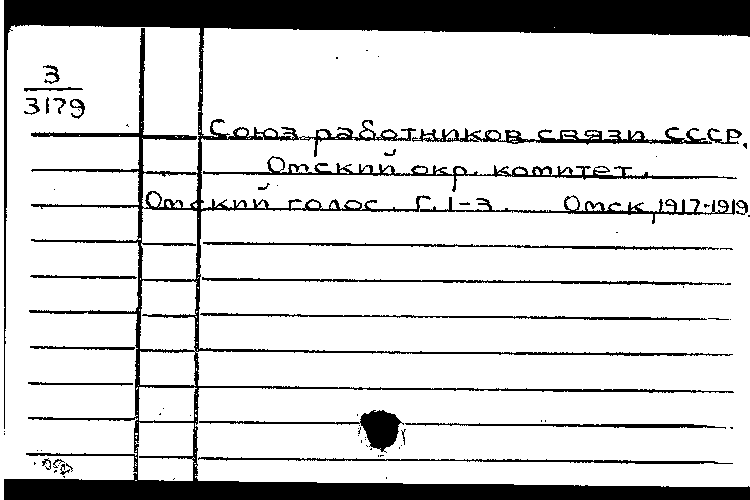 З
3179
Союз работников связи СССР.
Омский окр. комитет.
Омский голос. Г. 1-3. Омск, 1917-1919.